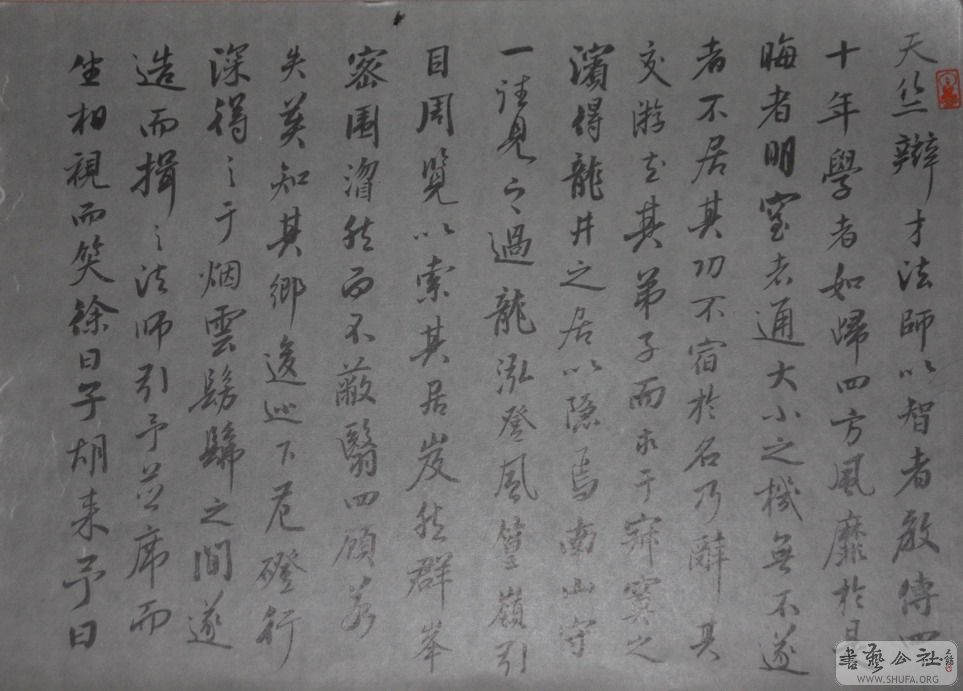 天竺辯才法師以智者教傳四
十年學者如歸四方風靡於是
晦者明窒者通大小之機無不遂
者不居其功不宿於名乃辭其
交游去其弟子而求于寂寞之
濱得龍井之居以隱焉南山守
一往見之過龍泓登風篁嶺引
目周覽以索其居岌然群峯
密圍㵮然而不蔽翳四顧若
失莫知其鄉逡巡下危磴行
深得之于烟雲髣髴之間遂
造而揖之法師引予並席而
坐相視而笑徐曰子胡來予曰
書藝公社
WWW.SHUFA.ORG